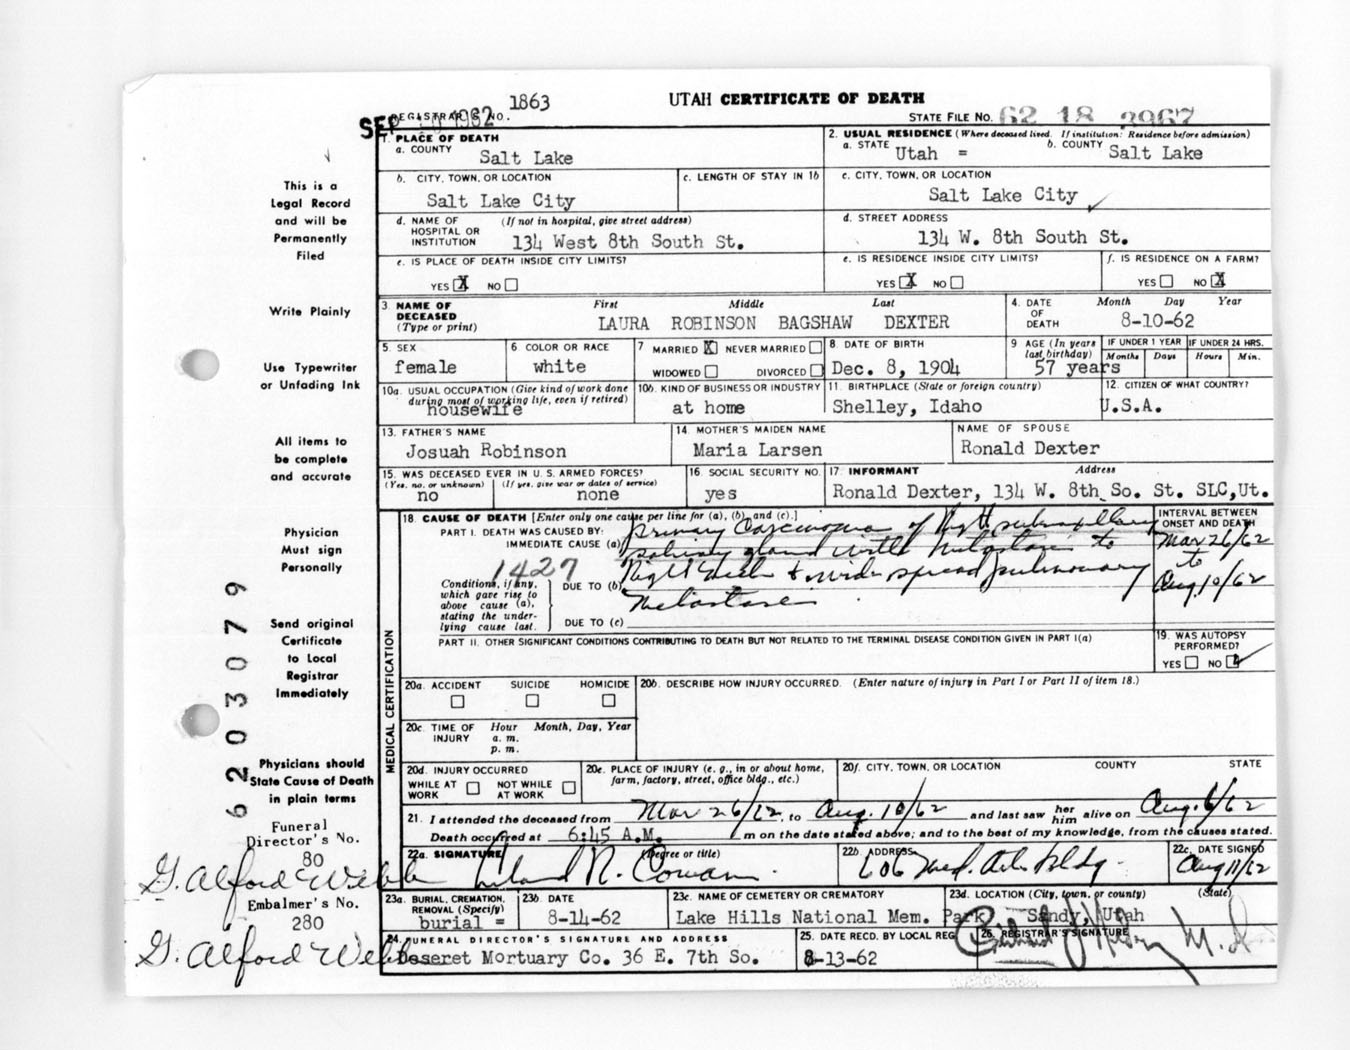 1863
UTAH CERTIFICATE OF DEATH
REGISTRAR'S NO.
STATE FILE NO. 62 18 3967
SEP 1962
1. PLACE OF DEATH
a. COUNTY
Salt Lake
2. USUAL RESIDENCE (Where deceased lived. If institution: Residence before admission)
a. STATE Utah =
b. COUNTY Salt Lake
b. CITY, TOWN, OR LOCATION
Salt Lake City
c. LENGTH OF STAY IN 1b
c. CITY, TOWN, OR LOCATION
Salt Lake City
d. NAME OF HOSPITAL OR INSTITUTION (If not in hospital, give street address)
134 West 8th South St.
d. STREET ADDRESS
134 W. 8th South St.
e. IS PLACE OF DEATH INSIDE CITY LIMITS?
YES X NO
e. IS RESIDENCE INSIDE CITY LIMITS?
YES X NO
f. IS RESIDENCE ON A FARM?
YES NO X
3 NAME OF DECEASED (Type or print)
First Middle Last
LAURA ROBINSON BAGSHAW DEXTER
4. DATE OF DEATH Month Day Year
8-10-62
5. SEX
female
6 COLOR OR RACE
white
7 MARRIED X NEVER MARRIED
WIDOWED DIVORCED
8 DATE OF BIRTH
Dec. 8, 1904
9 AGE (In years last birthday)
57 years
IF UNDER 1 YEAR
Months Days
IF UNDER 24 HRS.
Hours Min.
10a. USUAL OCCUPATION (Give kind of work done during most of working life, even if retired)
housewife
10b. KIND OF BUSINESS OR INDUSTRY
at home
11. BIRTHPLACE (State or foreign country)
Shelley, Idaho
12. CITIZEN OF WHAT COUNTRY?
U.S.A.
13. FATHER'S NAME
Josuah Robinson
14. MOTHER'S MAIDEN NAME
Maria Larsen
NAME OF SPOUSE
Ronald Dexter
15. WAS DECEASED EVER IN U. S. ARMED FORCES?
(Yes, no, or unknown) (If yes, give war or dates of service)
no none
16. SOCIAL SECURITY NO.
yes
17. INFORMANT Address
Ronald Dexter, 134 W. 8th So. St. SLC,Ut.
MEDICAL CERTIFICATION
18. CAUSE OF DEATH [Enter only one cause per line for (a), (b), and (c).]
PART I. DEATH WAS CAUSED BY:
IMMEDIATE CAUSE (a)
primary Carcinoma of Right submaxillary
salivary gland with metastasis to
1427
Conditions, if any, which gave rise to above cause (a), stating the underlying cause last.
DUE TO (b)
Right neck & wide spread pulmonary
metastases.
DUE TO (c)
INTERVAL BETWEEN ONSET AND DEATH
Mar 26/62
to
Aug 10/62
PART II. OTHER SIGNIFICANT CONDITIONS CONTRIBUTING TO DEATH BUT NOT RELATED TO THE TERMINAL DISEASE CONDITION GIVEN IN PART I(a)
19. WAS AUTOPSY PERFORMED?
YES NO ✓
20a. ACCIDENT SUICIDE HOMICIDE
20b. DESCRIBE HOW INJURY OCCURRED. (Enter nature of injury in Part I or Part II of item 18.)
20c. TIME OF INJURY Hour Month, Day, Year
a. m.
p. m.
20d. INJURY OCCURRED
WHILE AT WORK NOT WHILE AT WORK
20e. PLACE OF INJURY (e. g., in or about home, farm, factory, street, office bldg., etc.)
20f. CITY, TOWN, OR LOCATION COUNTY STATE
21. I attended the deceased from Mar 26/62, to Aug. 10/62 and last saw her him alive on Aug. 6/62
Death occurred at 6:45 A.M. m on the date stated above; and to the best of my knowledge, from the causes stated.
22a. SIGNATURE (Degree or title)
Leland R. Cowan
22b. ADDRESS
606 Med. Arts Bldg.
22c. DATE SIGNED
Aug 11/62
23a. BURIAL, CREMATION, REMOVAL (Specify)
burial =
23b. DATE
8-14-62
23c. NAME OF CEMETERY OR CREMATORY
Lake Hills National Mem. Park
23d. LOCATION (City, town, or county) (State)
Sandy, Utah
24. FUNERAL DIRECTOR'S SIGNATURE AND ADDRESS
Deseret Mortuary Co. 36 E. 7th So.
25. DATE RECD. BY LOCAL REG.
8-13-62
26. REGISTRAR'S SIGNATURE
M.D.
This is a
Legal Record
and will be
Permanently
Filed
Write Plainly
Use Typewriter
or Unfading Ink
All items to
be complete
and accurate
Physician
Must sign
Personally
Send original
Certificate
to Local
Registrar
Immediately
Physicians should
State Cause of Death
in plain terms
Funeral
Director's No.
80
G. Alford Webb
Embalmer's No.
280
G. Alford Webb
6203079